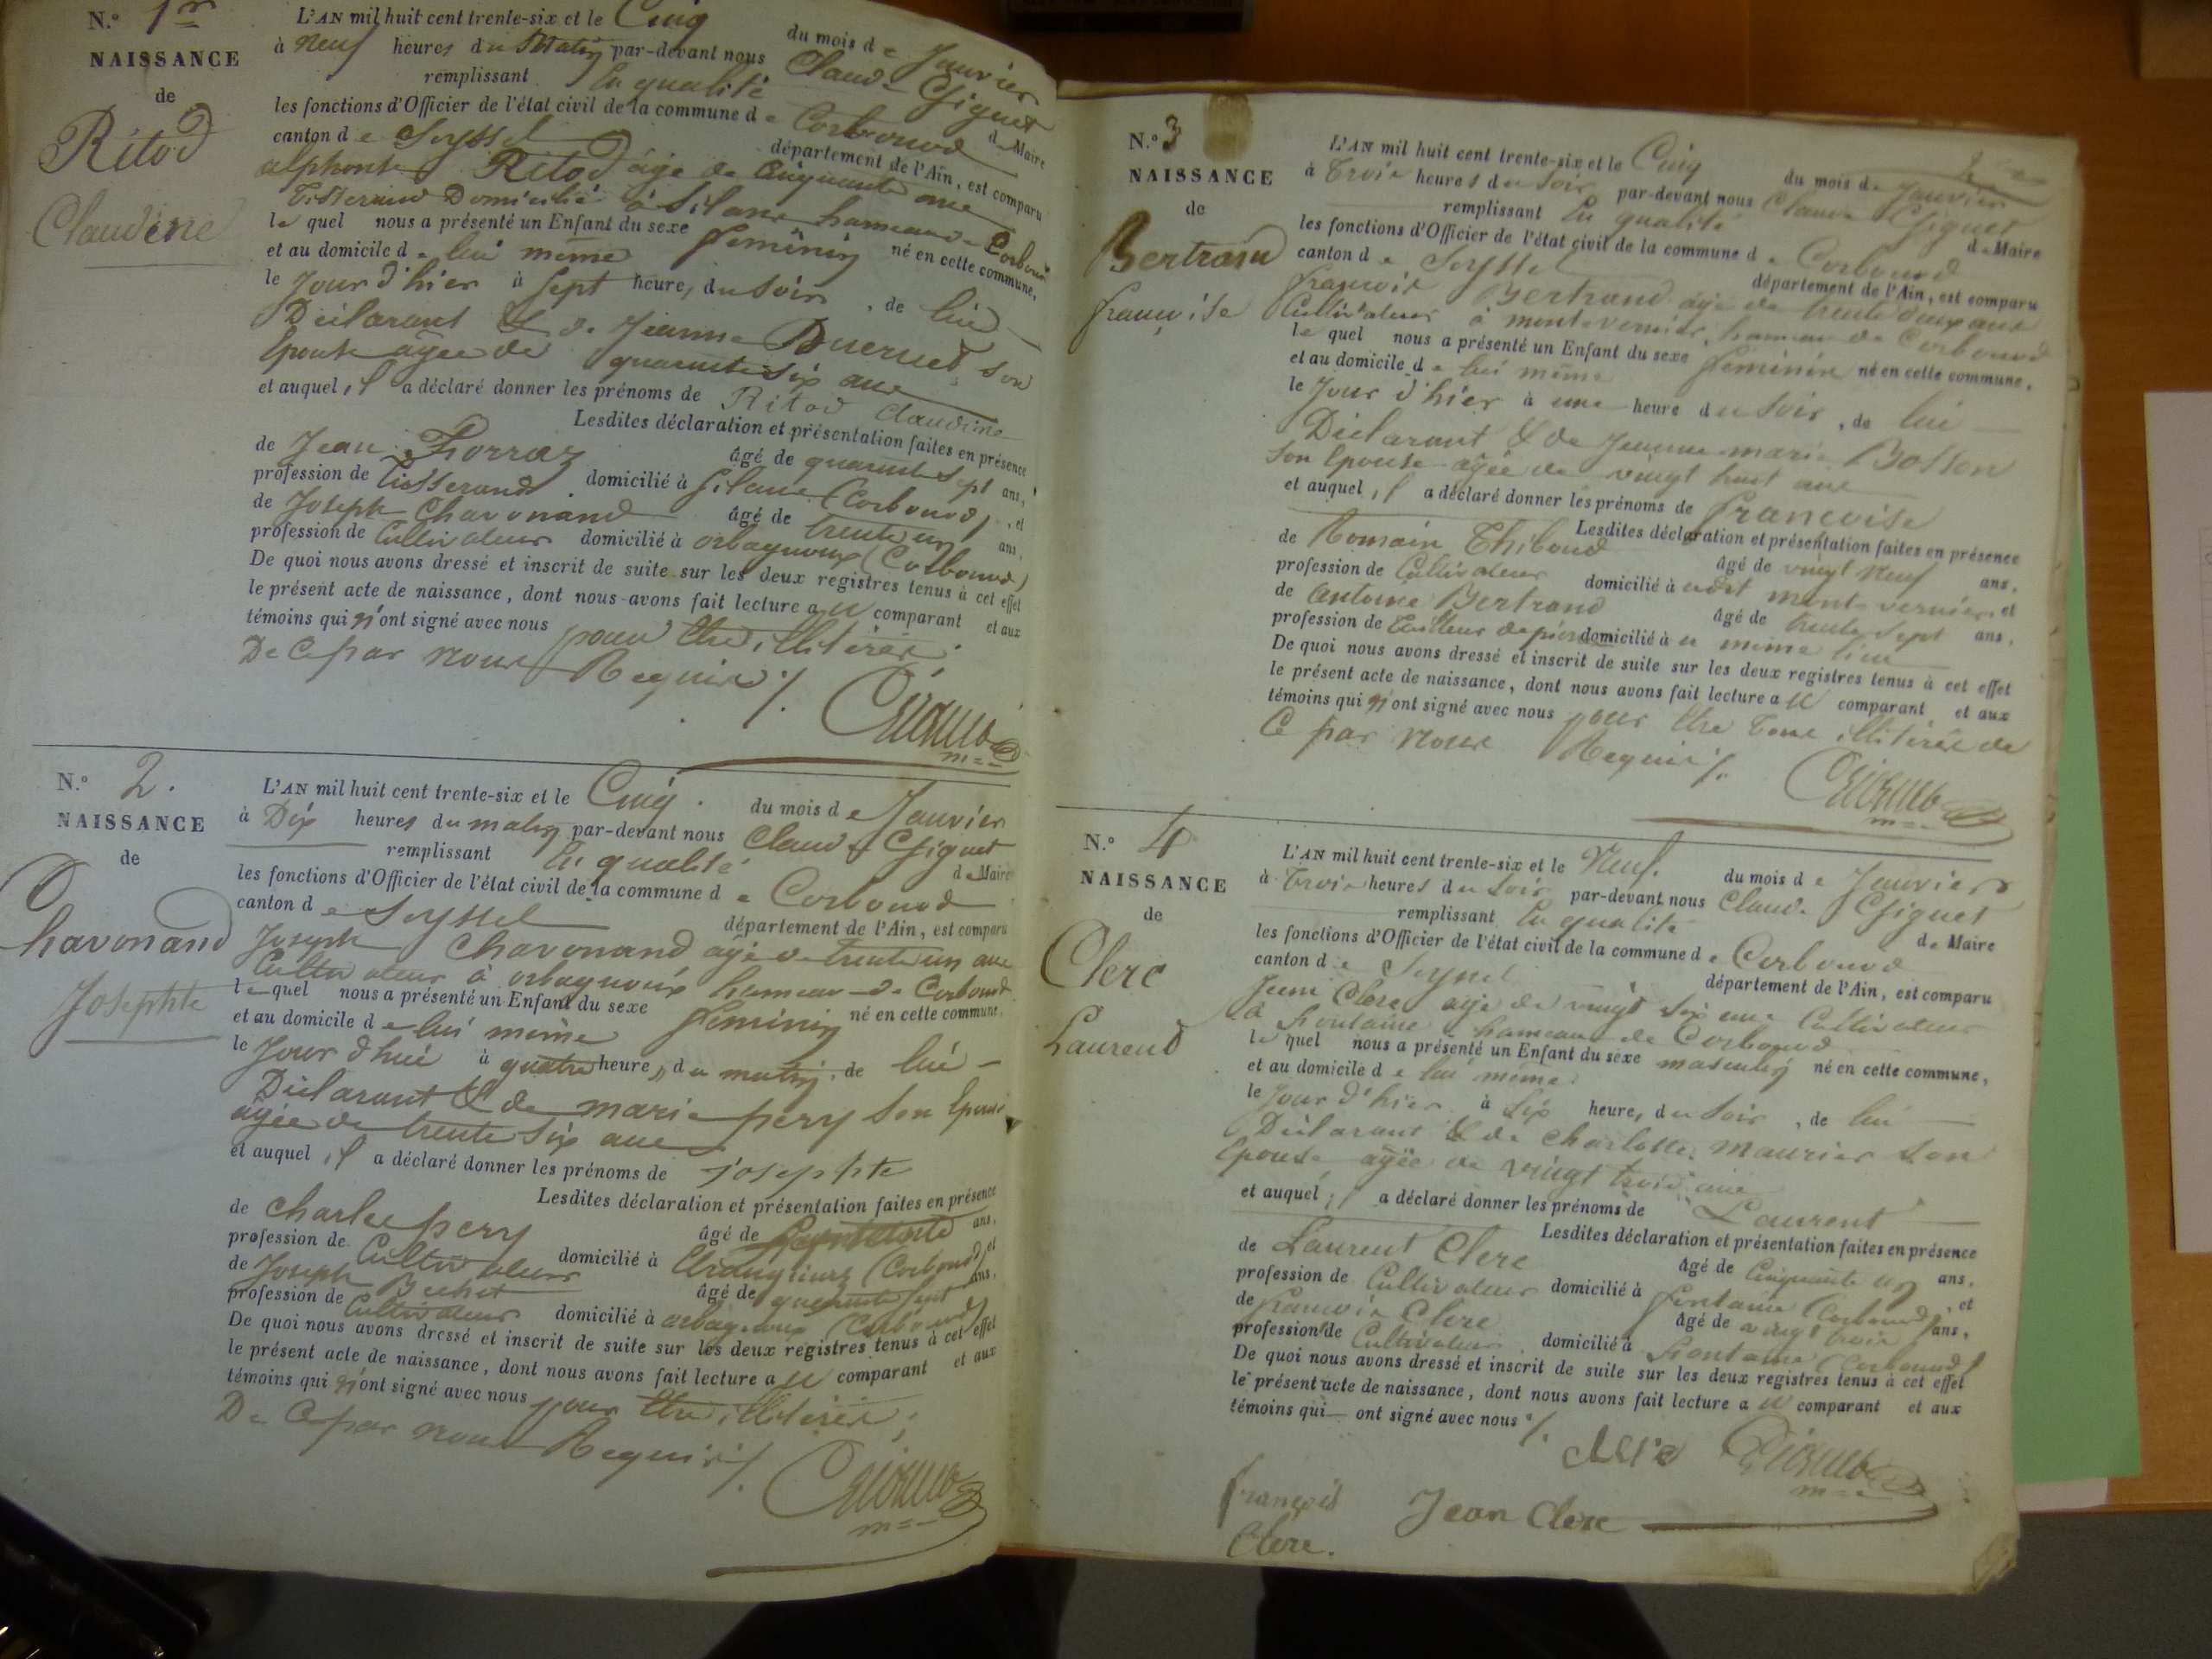 N.° 1er
NAISSANCE
de
Ritod
Claudine
L'AN mil huit cent trente-six et le Cinq du mois de Janvier
à Neuf heures du Matin par-devant nous Claude
remplissant En qualité de Maire
les fonctions d'Officier de l'état civil de la commune de Corbonod
canton de Seyssel département de l'Ain, est comparu
alphonse Ritod âgé de Cinquante ans
Tisserand Domicilié à Silans hameau de Corbonod
lequel nous a présenté un Enfant du sexe feminin né en cette commune,
et au domicile de lui même
le Jour d'hier à sept heures du soir, de lui
Déclarant & de Jeanne son
Epouse âgée de quarante six ans
et auquel il a déclaré donner les prénoms de Ritod Claudine
Lesdites déclaration et présentation faites en présence
de Jean âgé de quarante sept ans,
profession de Tisserand domicilié à Silans (Corbonod), et
de Joseph Chavonand âgé de trente un ans,
profession de Cultivateur domicilié à orbagnoux (Corbonod)
De quoi nous avons dressé et inscrit de suite sur les deux registres tenus à cet effet
le présent acte de naissance, dont nous avons fait lecture au comparant et aux
témoins qui n'ont signé avec nous pour être illitérés
De Ce par nous Requis ./.
N.° 2.
NAISSANCE
de
Chavonand
Josephte
L'AN mil huit cent trente-six et le Cinq. du mois de Janvier
à Dix heures du matin par-devant nous Claude
remplissant En qualité de Maire
les fonctions d'Officier de l'état civil de la commune de Corbonod
canton de Seyssel département de l'Ain, est comparu
Joseph Chavonand âgé de trente un ans
Cultivateur à orbagnoux hameau de Corbonod
lequel nous a présenté un Enfant du sexe feminin né en cette commune,
et au domicile de lui même
le Jour d'hui à quatre heures du matin, de lui
Déclarant & de marie pery son Epouse
âgée de trente six ans
et auquel il a déclaré donner les prénoms de josephte
Lesdites déclaration et présentation faites en présence
de Charles pery âgé de ans,
profession de Cultivateur domicilié à (Corbonod) et
de Joseph âgé de quarante sept ans,
profession de Cultivateur domicilié à orbagnoux (Corbonod)
De quoi nous avons dressé et inscrit de suite sur les deux registres tenus à cet effet
le présent acte de naissance, dont nous avons fait lecture au comparant et aux
témoins qui n'ont signé avec nous pour être illitérés,
De Ce par nous Requis ./.
N.° 3
NAISSANCE
de
Bertrand
françoise
L'AN mil huit cent trente-six et le Cinq du mois de Janvier
à Trois heures du soir par-devant nous Claude
remplissant En qualité de Maire
les fonctions d'Officier de l'état civil de la commune de Corbonod
canton de Seyssel département de l'Ain, est comparu
françois Bertrand âgé de trente deux ans
Cultivateur à montvernier, hameau de Corbonod
lequel nous a présenté un Enfant du sexe feminin né en cette commune,
et au domicile de lui même
le Jour d'hier à une heure du soir, de lui
Déclarant & de Jeanne marie Bosson
son Epouse âgée de vingt huit ans
et auquel il a déclaré donner les prénoms de francoise
Lesdites déclaration et présentation faites en présence
de Romain Thiboud âgé de vingt neuf ans,
profession de Cultivateur domicilié à udit montvernier, et
de antoine Bertrand âgé de trente sept ans,
profession de tailleur de pierre domicilié à u même lieu
De quoi nous avons dressé et inscrit de suite sur les deux registres tenus à cet effet
le présent acte de naissance, dont nous avons fait lecture au comparant et aux
témoins qui n'ont signé avec nous pour être tous illitérés de
Ce par nous Requis ./.
N.° 4
NAISSANCE
de
Clerc
Laurend
L'AN mil huit cent trente-six et le Neuf. du mois de Janvier
à Trois heures du soir par-devant nous Claude
remplissant En qualité de Maire
les fonctions d'Officier de l'état civil de la commune de Corbonod
canton de Seyssel département de l'Ain, est comparu
Jean Clerc âgé de vingt six ans Cultivateur
à fontaine hameau de Corbonod
lequel nous a présenté un Enfant du sexe masculin né en cette commune,
et au domicile de lui même
le Jour d'hier à six heures du soir, de lui
Déclarant & de Charlotte maurier son
Epouse âgée de vingt trois ans
et auquel il a déclaré donner les prénoms de Laurent
Lesdites déclaration et présentation faites en présence
de Laurent Clerc âgé de Cinquante un ans,
profession de Cultivateur domicilié à fontaine (Corbonod), et
de francois Clerc âgé de vingt trois ans,
profession de Cultivateur domicilié à fontaine (Corbonod)
De quoi nous avons dressé et inscrit de suite sur les deux registres tenus à cet effet
le présent acte de naissance, dont nous avons fait lecture au comparant et aux
témoins qui ont signé avec nous ./.
clerc
françois Jean Clerc
Clerc.